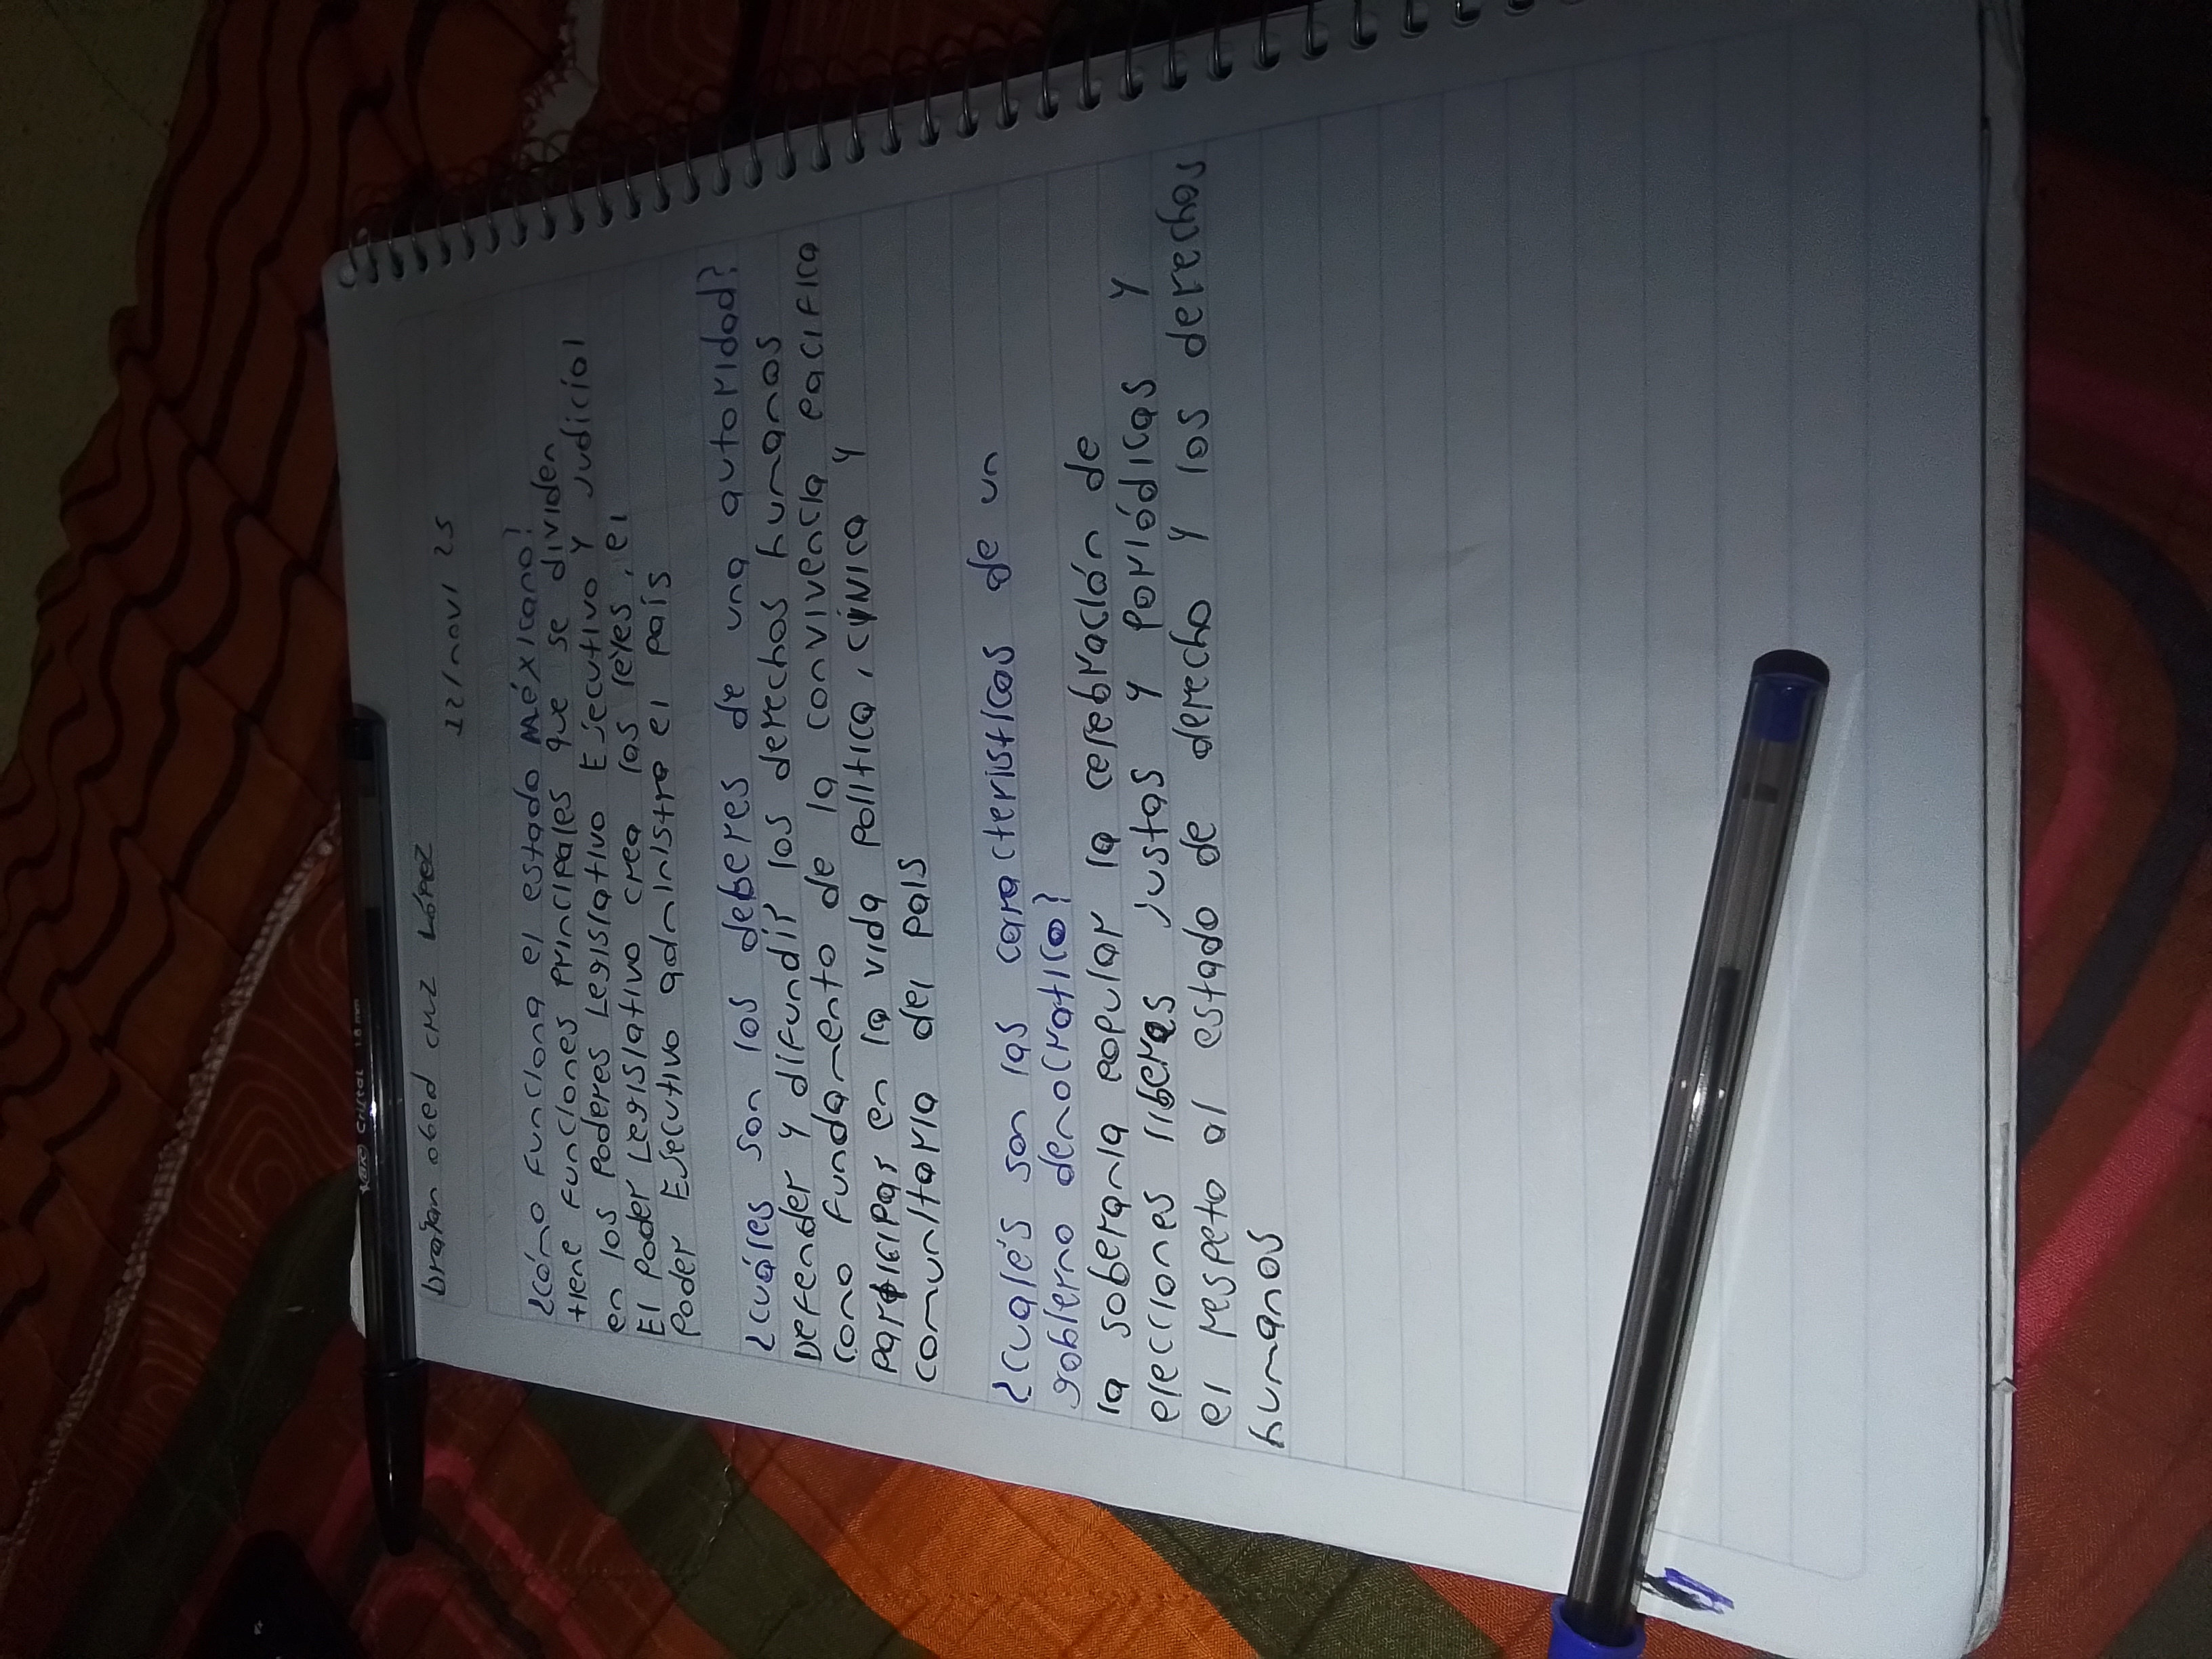 brajan obed cruz López
12/novi 25
¿Cómo funciona el estado méxicano?
tiene funciones principales que se dividen
en los Poderes Legislativo Ejecutivo y Judicial
El poder Legislativo crea las leyes, el
Poder Ejecutivo administra el país
¿Cuáles son los deberes de una autoridad?
Defender y difundir los derechos humanos
Como fundamento de la convivencia pacifica
Participar en la vida politica, cívica y
comunitaria del pais
¿Cualés son las características de un
gobierno democratico?
la soberania popular la celebración de
elecciones liberes justas y Poriódicas y
el respeto al estado de derecho y los derechos
humanos
Cristal 1.0 mm